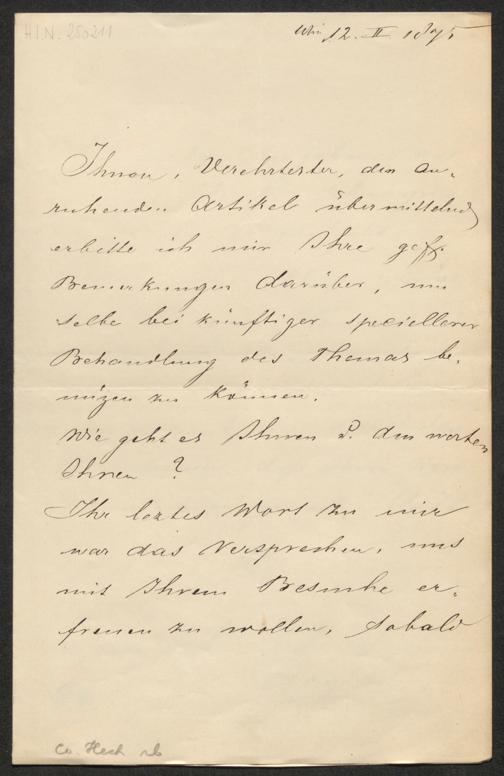 H.I.N. 250211
12. II 1895
Ihnen, Verehrtester, den an-
ruhenden Artikel übermittelnd
erbitte ich mir Ihre gef.
Bemerkungen darüber, um
selbe bei künftiger speciellerer
Behandlung des Themas be-
nüzen zu können.
Wie geht es Ihnen u. den werten
Ihren?
Ihr leztes Wort zu mir
war das Versprechen, uns
mit Ihrem Besuche er-
freuen zu wollen, sobald
Co.